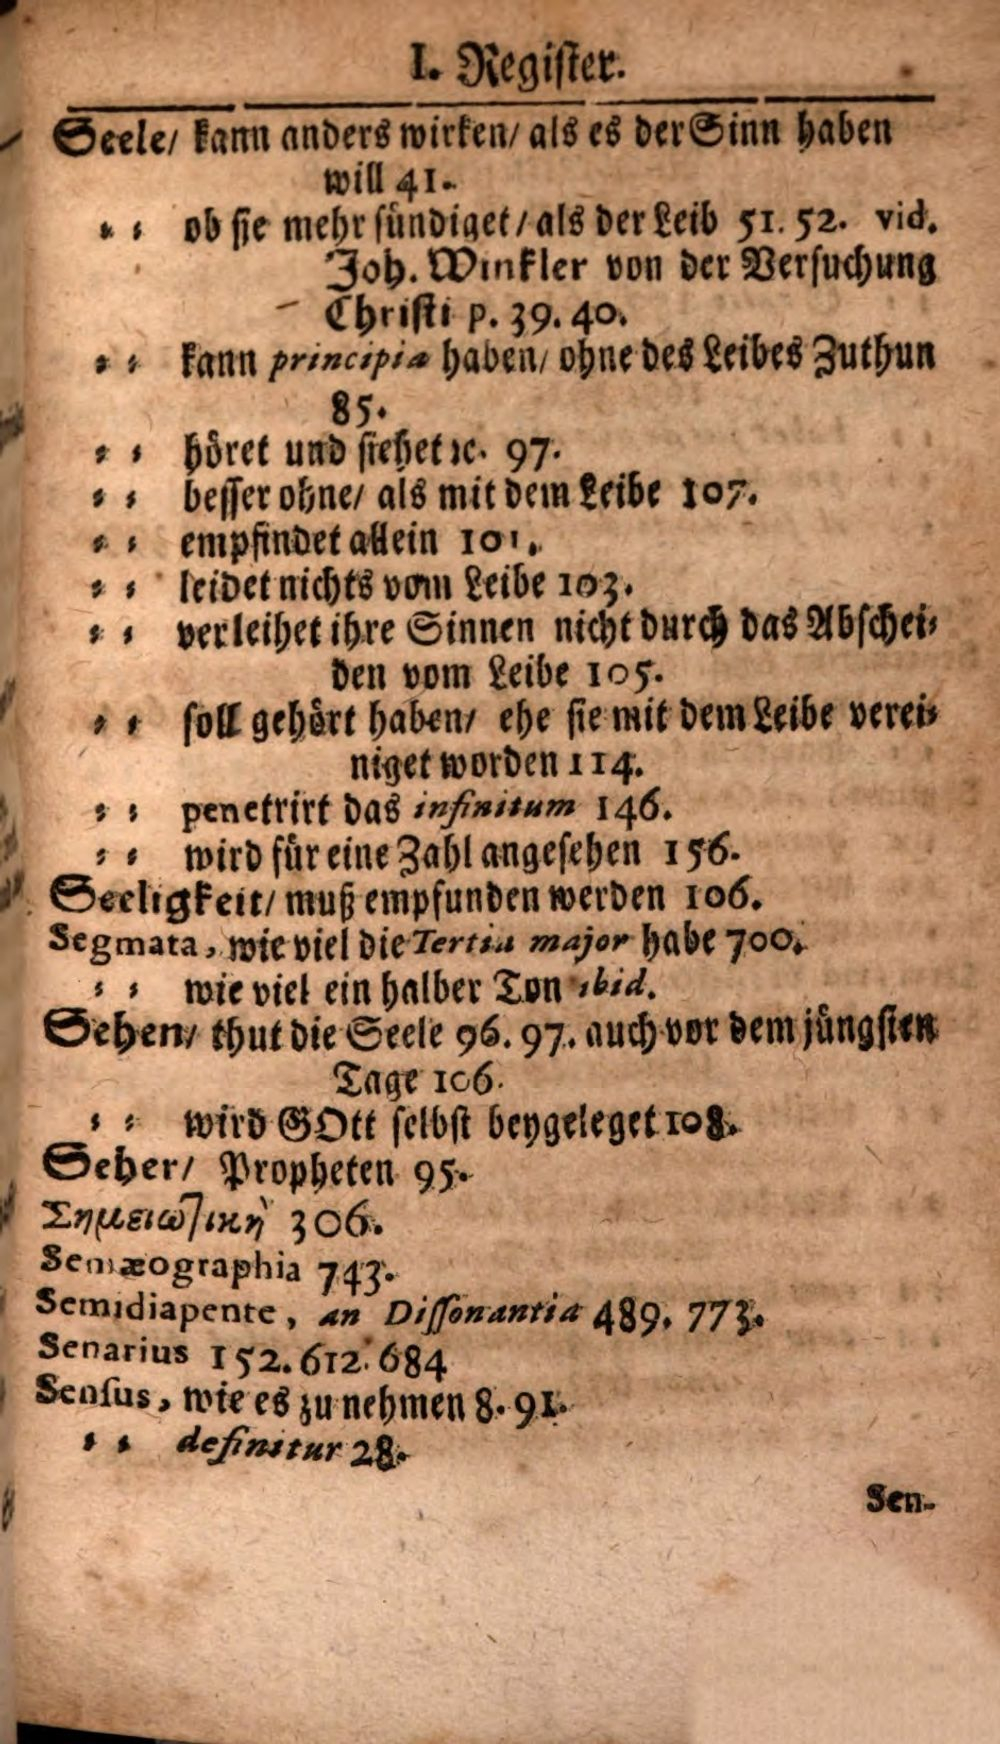 I. Register.
Seele/ kann anders wirken/ als es der Sinn haben
will 41.
⸗ ⸗ ob sie mehr sündiget/ als der Leib 51. 52. vid.
Joh. Winkler von der Versuchung
Christi p. 39. 40.
⸗ ⸗ kann principia haben/ ohne des Leibes Zuthun
85.
⸗ ⸗ höret und siehet ꝛc. 97.
⸗ ⸗ besser ohne/ als mit dem Leibe 107.
⸗ ⸗ empfindet allein 101.
⸗ ⸗ leidet nichts vom Leibe 103.
⸗ ⸗ verleihet ihre Sinnen nicht durch das Abschei⸗
den vom Leibe 105.
⸗ ⸗ soll gehört haben/ ehe sie mit dem Leibe verei⸗
niget worden 114.
⸗ ⸗ penetrirt das infinitum 146.
⸗ ⸗ wird für eine Zahl angesehen 156.
Seeligkeit/ muß empfunden werden 106.
Segmata, wie viel die Tertia major habe 700.
⸗ ⸗ wie viel ein halber Ton ibid.
Sehen/ thut die Seele 96. 97. auch vor dem jüngsten
Tage 106.
⸗ ⸗ wird GOtt selbst beygeleget 108.
Seher/ Propheten 95.
Σημειωτικὴ 306.
Semæographia 743.
Semidiapente, an Dissonantia 489. 773.
Senarius 152. 612. 684
Sensus, wie es zu nehmen 8. 91.
⸗ ⸗ definitur 28.
Sen-